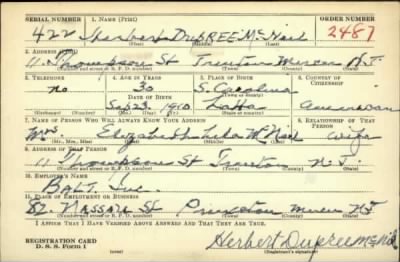 SERIAL NUMBER 1. NAME (Print) ORDER NUMBER
422 Herbert DUPREE McNeil 2487
2. ADDRESS (Print)
11 Thompson St Trenton Mercer N.J.
(Number and street or R. F. D. number) (Town) (County) (State)
3. TELEPHONE 4. AGE IN YEARS 5. PLACE OF BIRTH 6. COUNTRY OF CITIZENSHIP
no. 30 S. Carolina
DATE OF BIRTH (Town or county)
23 1910 Latta American
(Mo.) (Day) (Yr.) (State or country)
7. NAME OF PERSON WHO WILL ALWAYS KNOW YOUR ADDRESS 8. RELATIONSHIP OF THAT PERSON
Mrs. Elizabeth McNeil wife
(Mr., Mrs., Miss) (First) (Middle) (Last)
9. ADDRESS OF THAT PERSON
11 Thompson St Trenton N.J.
(Number and street or R. F. D. number) (Town) (County) (State)
10. EMPLOYER'S NAME
BALT. Inc.
11. PLACE OF EMPLOYMENT OR BUSINESS
82 NASSAU St Princeton Mercer NJ
(Number and street or R. F. D. number) (Town) (County) (State)
I AFFIRM THAT I HAVE VERIFIED ABOVE ANSWERS AND THAT THEY ARE TRUE.
REGISTRATION CARD
D. S. S. Form 1 Herbert Dupree McNeil
(Registrant's signature)